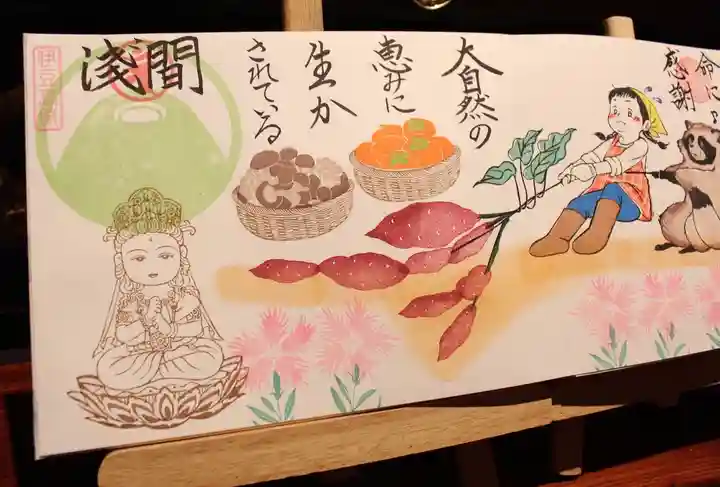 命に♪
感謝
大自然の
恵みに
生か
されている
淺間